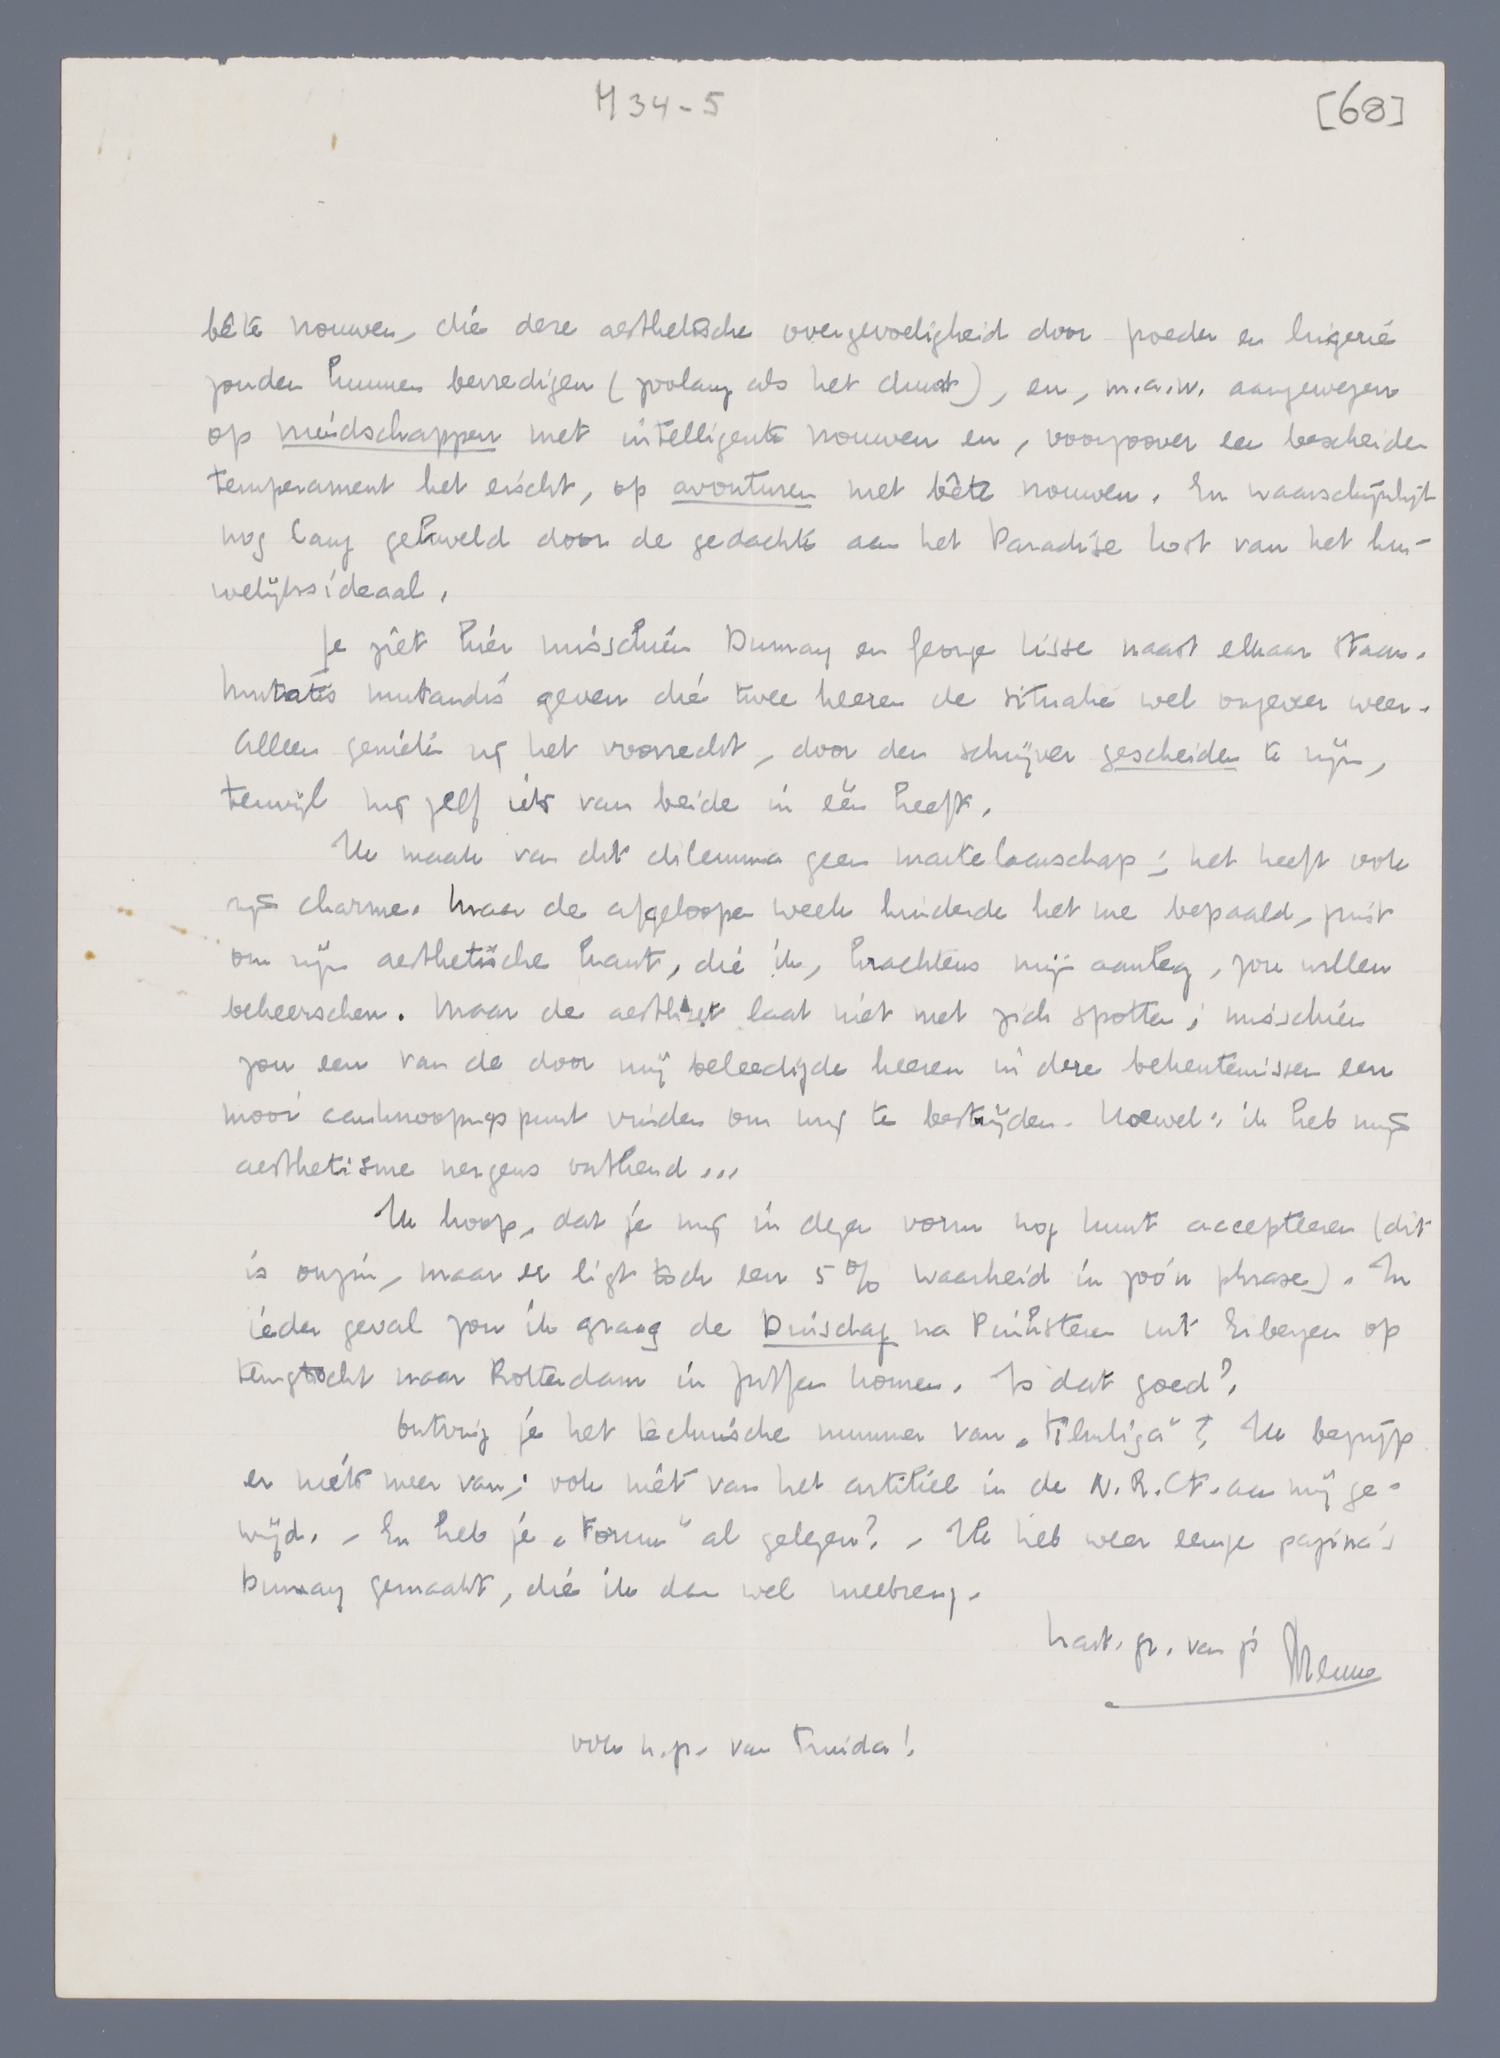 M 34-5
[68]
bête vrouwen, die deze aesthetische overgevoeligheid door poeder en lingerie
zouden kunnen bevredigen (zoolang als het duurt), en, m.a.w. aangewezen
op vriendschappen met intelligente vrouwen en, voorzoover een bescheiden
temperament het eischt, op avonturen met bête vrouwen. En waarschijnlijk
nog lang gekweld door de gedachte aan het Paradise Lost van het hu-
welijksideaal.
Je ziet hier misschien Dumay en George Lisse naast elkaar staan.
Mutatis mutandis geven die twee heeren de situatie wel ongeveer weer.
Alleen genieten zij het voorrecht, door den schrijver gescheiden te zijn,
terwijl hij zelf iets van beide in één heeft.
Ik maak van dit dilemma geen martelaarschap; het heeft ook
zijn charme. Maar de afgeloopen week hinderde het me bepaald, juist
om mijn aesthetische kant, die ik, krachtens mijn aanleg, zou willen
beheerschen. Maar de aestheet laat niet met zich spotten; misschien
zou een van de door mij beleedigde heeren in deze bekentenissen een
mooi aanknoopingspunt vinden om mij te bestrijden. Hoewel: ik heb mijn
aesthetisme nergens ontkend...
Ik hoop, dat je mij in dezen vorm nog kunt accepteeren (dit
is onzin, maar er ligt toch een 5% waarheid in zoo'n phrase). In
ieder geval zou ik graag de Dinsdag na Pinksteren uit Eibergen op
terugtocht naar Rotterdam in Zutfen komen. Is dat goed?
Ontving je het technische nummer van „Filmliga"? Ik begrijp
er niets meer van; ook niet van het artikel in de N.R.Ct. aan mij ge-
wijd. - En heb je „Forum" al gelezen? - Ik heb weer eenige pagina's
Dumay gemaakt, die ik dan wel meebreng.
hart. gr. van je Menno
ook h.gr. van Truida!